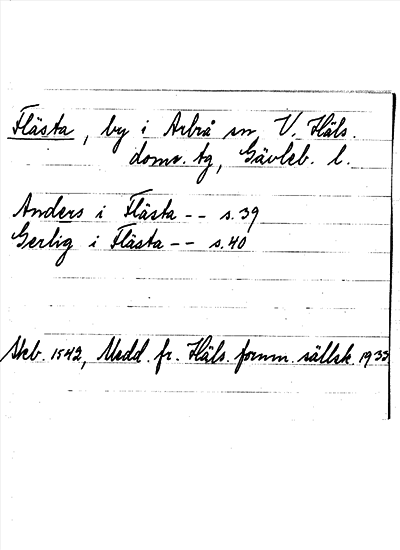 Flästa, by i Arbrå sn, V. Häls.
doms. tg, Gävleb. l.
Anders i Flästa -- s. 39
Gerlig i Flästa -- s. 40
Skb. 1542, Medd. fr. Häls. fornm. sällsk. 1933